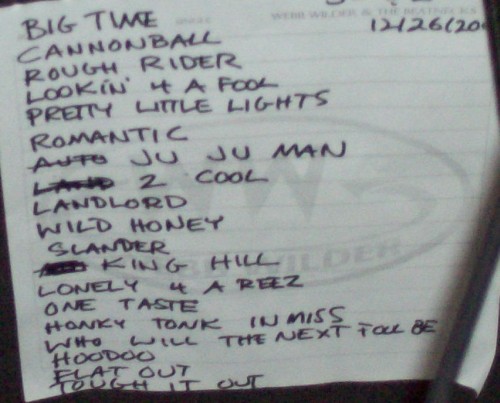 WEBB WILDER & THE BEATNECKS
12/26/20
BIG TIME
CANNONBALL
ROUGH RIDER
LOOKIN' 4 A FOOL
PRETTY LITTLE LIGHTS
ROMANTIC
AUTO JU JU MAN
LAND 2 COOL
LANDLORD
WILD HONEY
SLANDER
KING HILL
LONELY 4 A REEZ
ONE TASTE
HONKY TONK IN MISS
WHO WILL THE NEXT FOOL BE
HOODOO
FLAT OUT
TOUGH IT OUT
WW3
WEBB WILDER